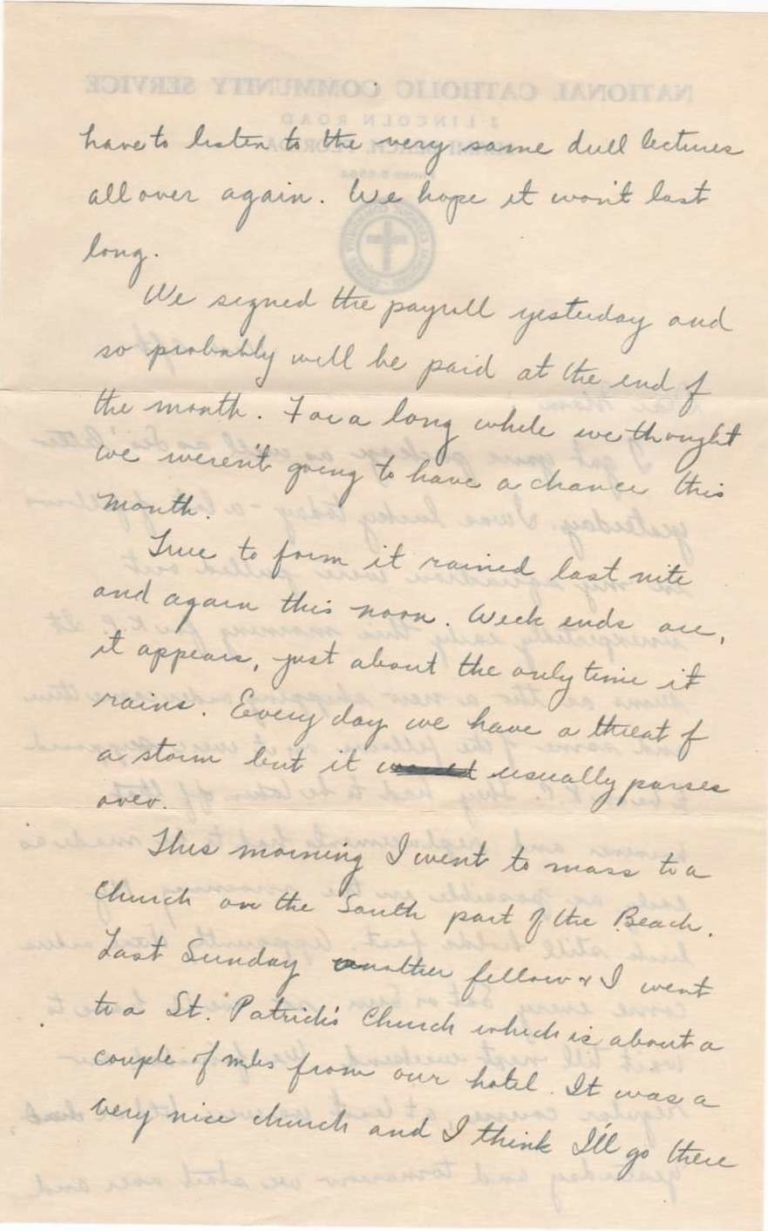 have to listen to the very same dull lectures
all over again. We hope it won't last
long.
We signed the payroll yesterday and
so probably will be paid at the end of
the month. For a long while we thought
we weren't going to have a chance this
month.
True to form it rained last nite
and again this noon. Week ends are,
it appears, just about the only time it
rains. Every day we have a threat of
a storm but it usually passes
over.
This morning I went to mass to a
Church on the South part of the Beach.
Last Sunday another fellow & I went
to a St. Patrick's Church which is about a
couple of miles from our hotel. It was a
very nice church and I think I'll go there